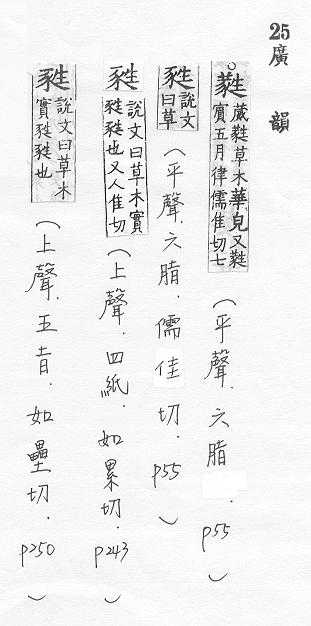 25廣韻
蕤葳蕤草木華皃又蕤賓五月律儒隹切七（平聲．六脂．p55）
甤說文曰草（平聲．六脂．儒佳切．p55）
甤說文曰草木實甤甤也又人隹切（上聲．四紙．如累切．p243）
甤說文曰草木實甤甤也（上聲．五旨．如壘切．p250）